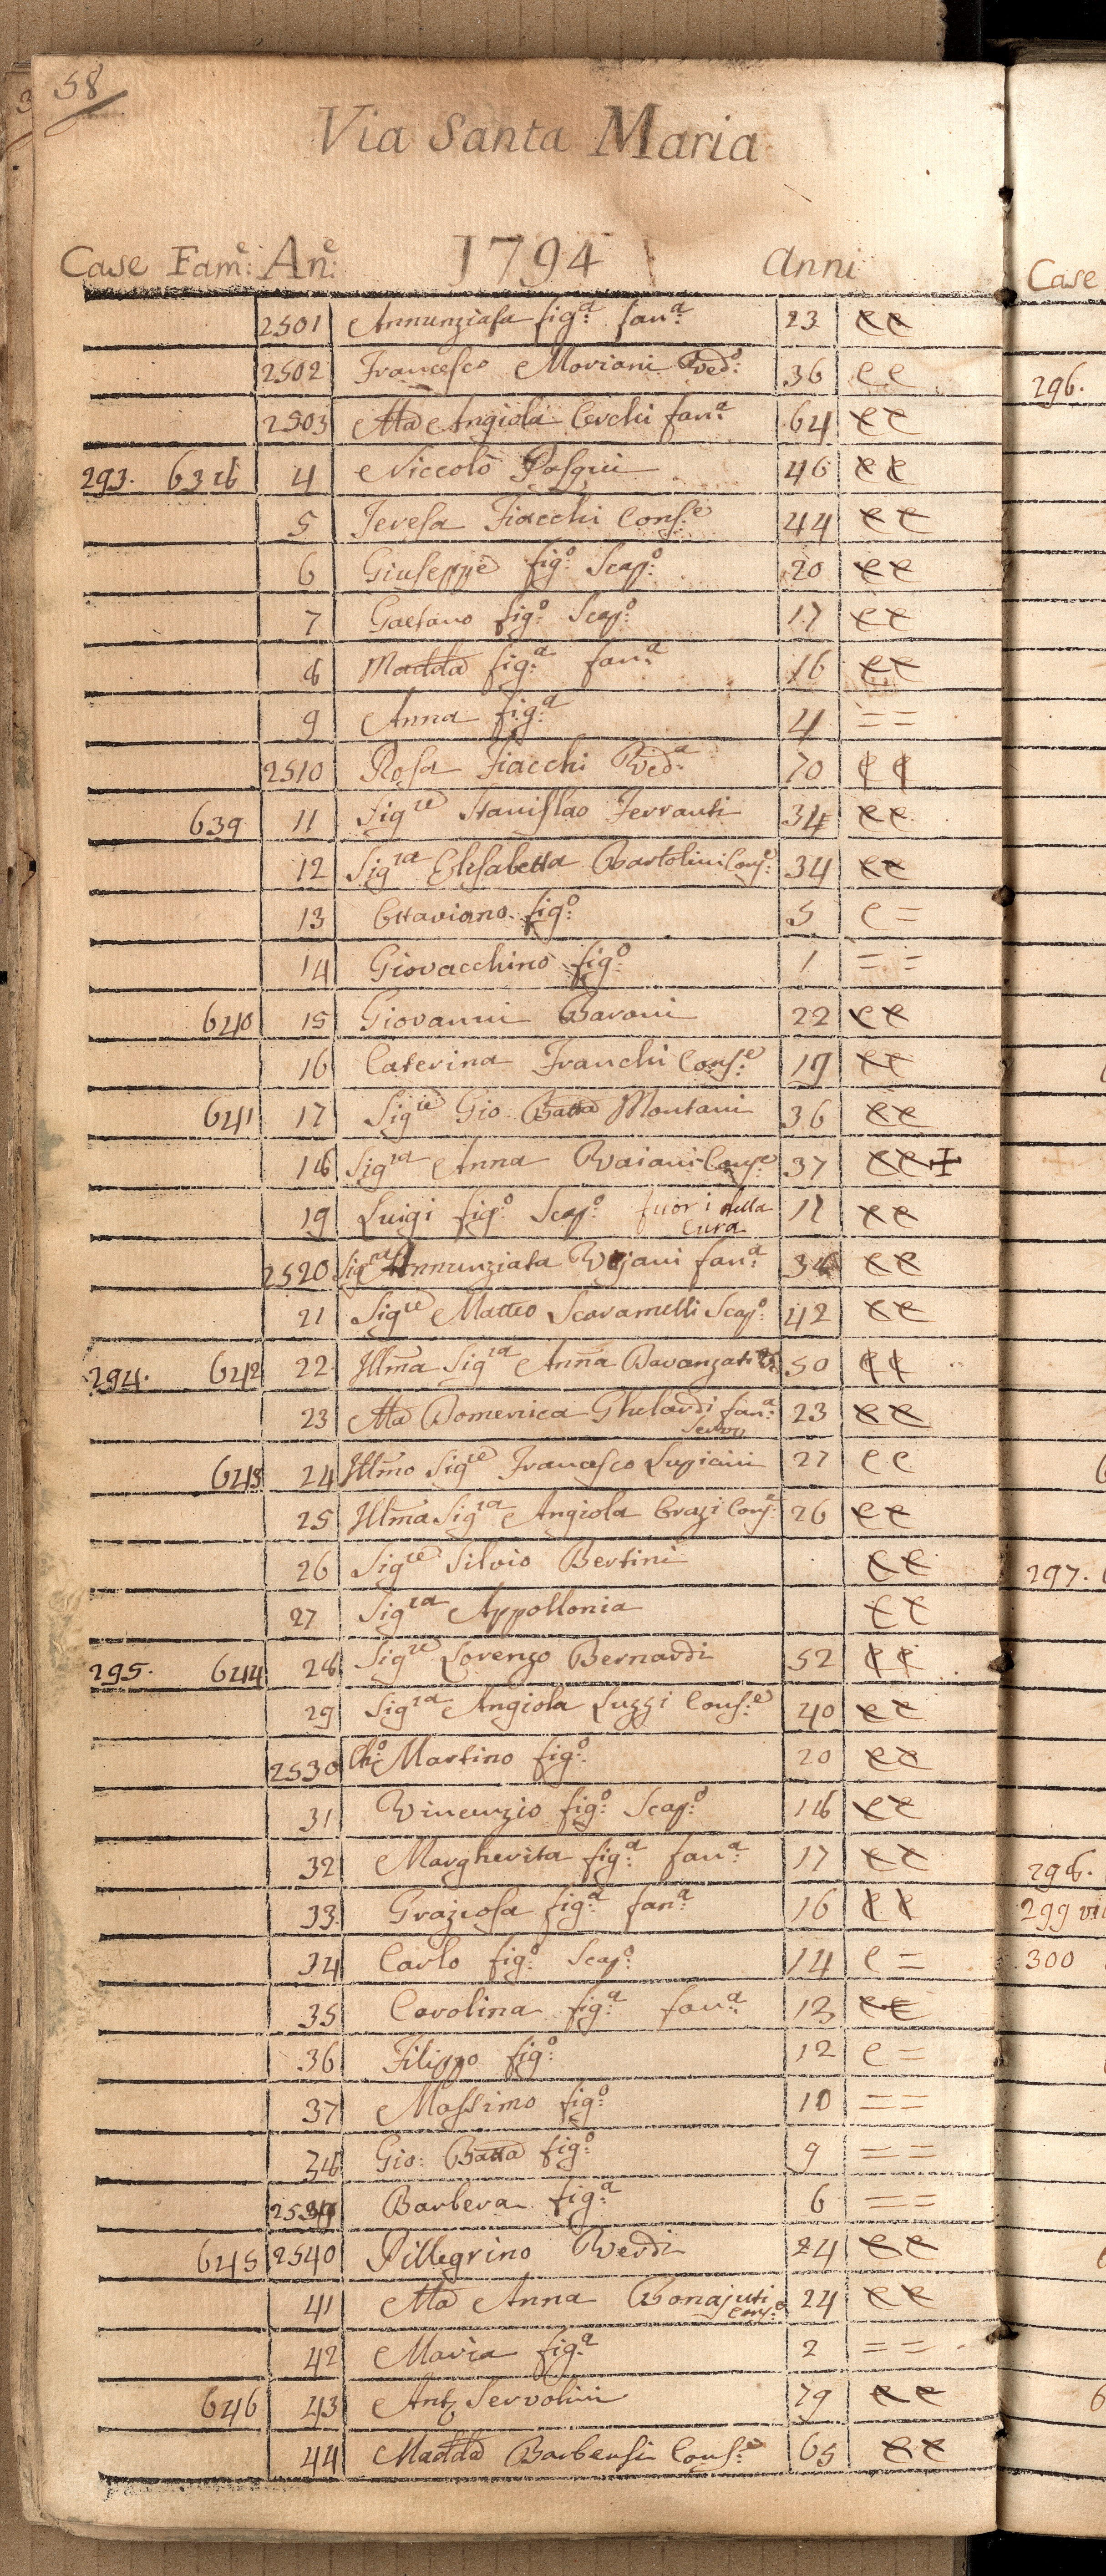 58
Via Santa Maria
Case Fam.e An.e 1794 anni
2501 Annunziata fig.a fan.a 23 e e
2502 Francesco Moriani Ved.o 36 e e
2503 Ma Angiola Cerchi fan.a 64 e e
293. 638 4 Niccolò Pasqui 46 e e
5 Teresa Fiacchi Cons.e 44 e e
6 Giuseppe fig.o Scap.o 20 e e
7 Gaetano fig.o Scap.o 17 e e
8 Madda fig.a fan.a 16 e e
9 Anna fig.a 4 = =
2510 Rosa Fiacchi Ved.a 70 e e
639 11 Sig.re Stanislao Ferranti 34 e e
12 Sig.ra Elisabetta Bartolini Cons.e 34 e e
13 Ottaviano fig.o 5 e =
14 Giovacchino fig.o 1 = =
640 15 Giovanni Baroni 22 e e
16 Caterina Franchi Cons.e 19 e e
641 17 Sig.re Gio Batta Montani 36 e e
18 Sig.ra Anna Vaiani Cons.e 37 e e ‡
19 Luigi fig.o Scap.o fuori della 11 e e
Cura
2520 Sig.ra Annunziata Vajani fan.a 34 e e
21 Sig.re Matteo Scaramelli Scap.o 42 e e
294. 642 22 Illma Sig.ra Anna Davanzati 50 e e
23 Ma Domenica Ghelardi fan.a 23 e e
Serva
643 24 Illmo Sig.re Francesco Lupicini 27 e e
25 Illma Sig.ra Angiola Cons. 26 e e
26 Sig.re Silvio Bertini e e
27 Sig.ra Appollonia e e
295. 644 28 Sig.re Lorenzo Bernardi 52 e e
29 Sig.ra Angiola Luzzi Cons.e 40 e e
2530 Ch.o Martino fig.o 20 e e
31 Vincenzio fig.o Scap.o 18 e e
32 Margherita fig.a fan.a 17 e e
33 Graziosa fig.a fan.a 16 e e
34 Carlo fig.o Scap.o 14 e =
35 Carolina fig.a fan.a 13 e e
36 Filippo fig.o 12 e =
37 Massimo fig.o 10 = =
38 Gio: Batta fig.o 9 = =
2539 Barbera fig.a 6 = =
645 2540 Pillegrino Verdi 24 e e
41 Ma Anna Bonajuti 24 e e
Cons.e
42 Maria fig.a 2 = =
646 43 Ant.o Servolini 79 e e
44 Madda Barbensi Cons.e 65 e e
Case
296.
297.
298.
299
300